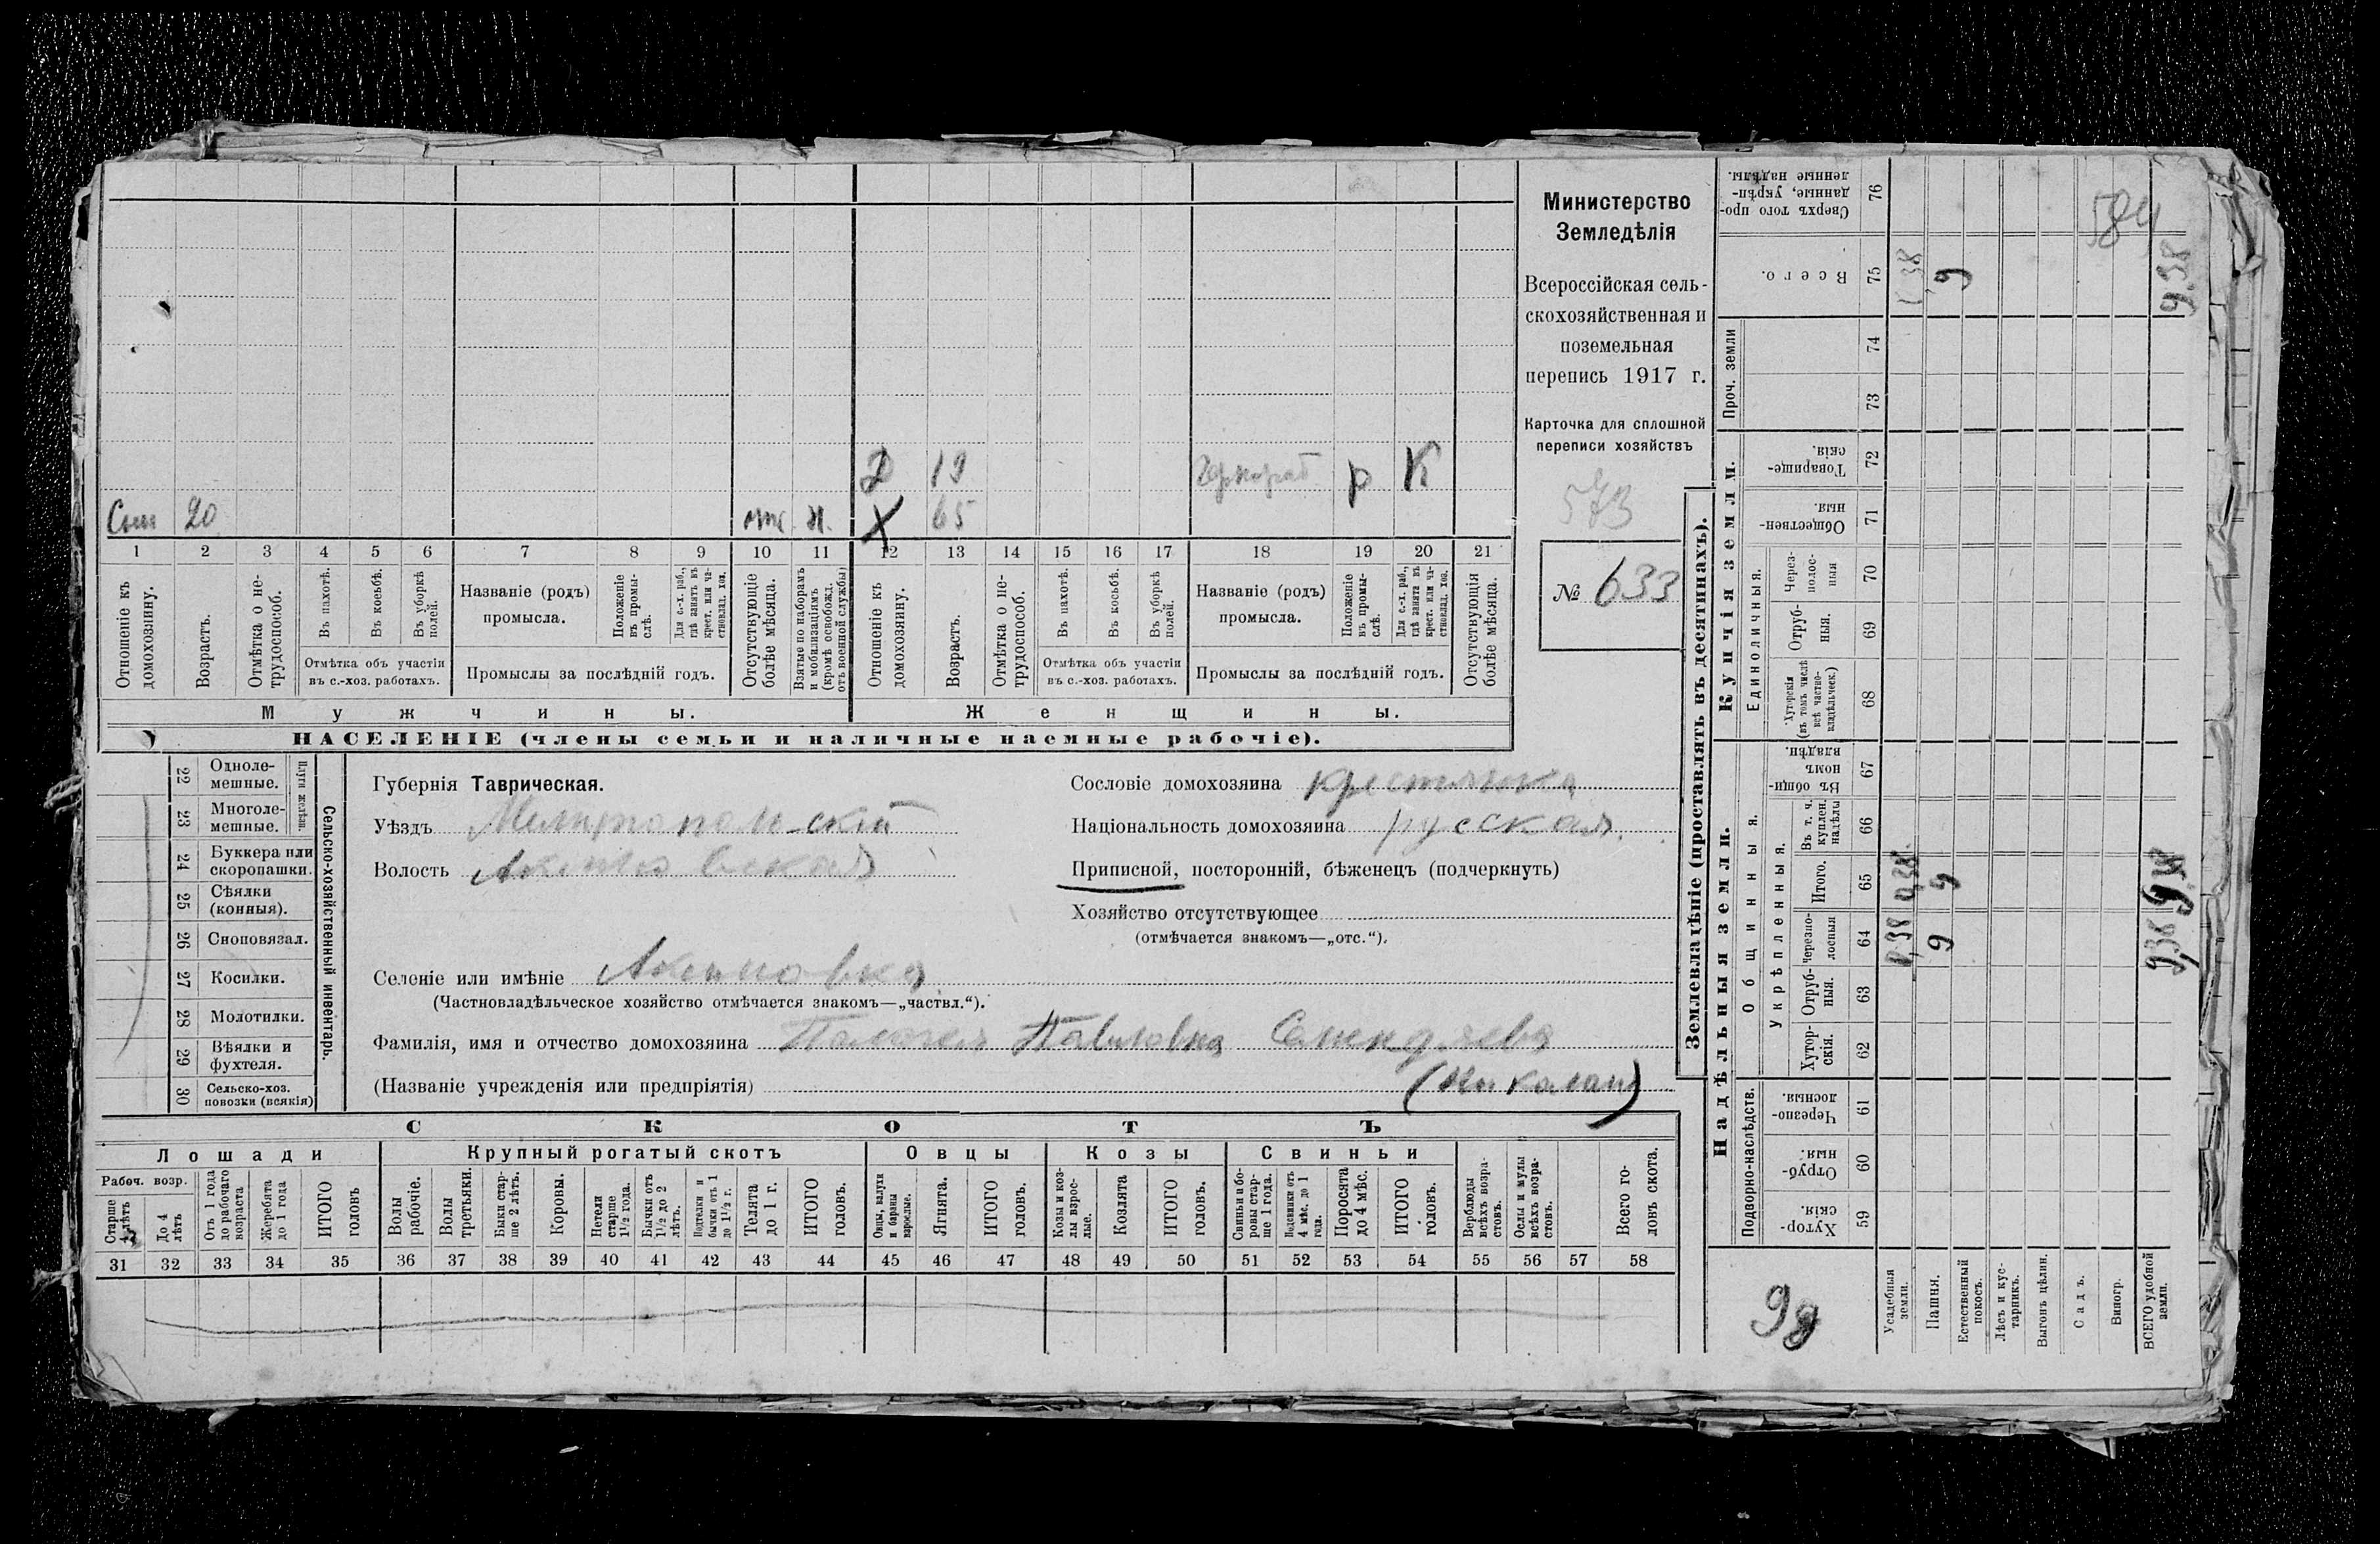 Д 19 р К
Сын 20 отс. н. Х 65
1 2 3 4 5 6 7 8 9 10 11 12 13 14 15 16 17 18 19 20 21
Отношеніе къ домохозяину.
Возрастъ.
Отмѣтка о нетрудоспособ.
Въ пахотѣ.
Въ косьбѣ.
Въ уборкѣ полей.
Отмѣтка объ участіи
въ с.-хоз. работахъ.
Названіе (родъ)
промысла.
Положеніе въ промыслѣ.
Для с.-х. раб., гдѣ занятъ въ крест. или частновлад. хоз.
Промыслы за послѣдній годъ.
Отсутствующіе болѣе мѣсяца.
Взятые по наборамъ и мобилизаціямъ (кромѣ освобожд. отъ военной службы)
Отношеніе къ домохозяину.
Возрастъ.
Отмѣтка о нетрудоспособ.
Въ пахотѣ.
Въ косьбѣ.
Въ уборкѣ полей.
Отмѣтка объ участіи
въ с.-хоз. работахъ.
Названіе (родъ)
промысла.
Положеніе въ промыслѣ.
Для с.-х. раб., гдѣ занята въ крест. или частновлад. хоз.
Промыслы за послѣдній годъ.
Отсутствующія болѣе мѣсяца.
Мужчины. Женщины.
НАСЕЛЕНІЕ (члены семьи и наличные наемные рабочіе).
Министерство
Земледѣлія
Всероссійская сель-
скохозяйственная и
поземельная
перепись 1917 г.
Карточка для сплошной
переписи хозяйствъ
573
№ 633
22 Одноле-
мешные.
23 Многоле-
мешные.
Плуги желѣзн.
24 Буккера или
скоропашки.
25 Сѣялки
(конныя).
26 Сноповязал.
27 Косилки.
28 Молотилки.
29 Вѣялки и
фухтеля.
30 Сельско-хоз.
повозки (всякія)
Сельско-хозяйственный инвентарь.
Губернія Таврическая.
Уѣздъ Мелитопольскій
Волость Акимовская
Селеніе или имѣніе Акимовка
(Частновладѣльческое хозяйство отмѣчается знакомъ—„частвл.“).
Сословіе домохозяина крестьянка
Національность домохозяина русская.
Приписной, посторонній, бѣженецъ (подчеркнуть)
Хозяйство отсутствующее
(отмѣчается знакомъ—„отс.“).
Фамилія, имя и отчество домохозяина Пелагея Павловна
(Названіе учрежденія или предпріятія)
СКОТЪ
Лошади Крупный рогатый скотъ Овцы Козы Свиньи
Рабоч. возр.
Старше 4 лѣтъ
До 4 лѣтъ
Отъ 1 года до рабочаго возраста
Жеребята до 1 года
ИТОГО головъ
Волы рабочіе.
Волы третьяки.
Быки старше 2 лѣтъ.
Коровы.
Нетели старше 1½ года.
Бычки отъ 1½ до 2 лѣтъ.
Подтелки и бычки отъ 1 до 1½ г.
Телята до 1 г.
ИТОГО головъ.
Овцы, валухи и бараны взрослые.
Ягнята.
ИТОГО головъ.
Козы и козлы взрослые.
Козлята
ИТОГО головъ.
Свиньи и боровы старше 1 года.
Подсвинки отъ 4 мѣс. до 1 года.
Поросята до 4 мѣс.
ИТОГО головъ.
Верблюды всѣхъ возрастовъ.
Ослы и мулы всѣхъ возрастовъ.
Всего головъ скота.
31 32 33 34 35 36 37 38 39 40 41 42 43 44 45 46 47 48 49 50 51 52 53 54 55 56 57 58
Землевладѣніе (проставлять въ десятинахъ).
Надѣльныя земли. Купчія земли. Проч. земли
Подворно-наслѣдств.
Общинныя.
Укрѣпленныя.
Единоличныя.
Хуторскія. 59
Отрубныя. 60
Черезполосныя. 61
Хуторскія. 62
Отрубныя. 63
Черезполосныя 64
Итого. 65
Въ т. ч. куплен. надѣлы 66
Въ общиномъ владѣн. 67
Хуторскія (въ томъ числѣ всѣ частновладѣльческ.) 68
Отрубныя. 69
Черезполосныя 70
Общественныя. 71
Товарищескія. 72
73
74
Всего. 75
Сверхъ того проданные, укрѣпленные надѣлы. 76
584
Усадебныя земли. 0,38 0,38
Пашня. 9 9 9
Естественный покосъ.
Лѣсъ и кустарникъ.
Выгонъ цѣлин.
Садъ.
Виногр.
ВСЕГО удобной земли. 9,38 9,38 9.38
9д